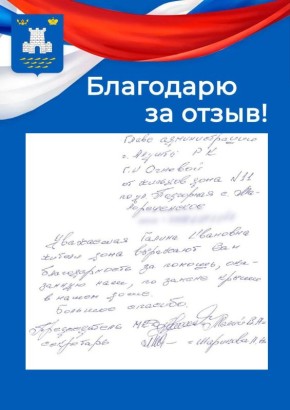 Благодарю
за отзыв!
Главе администрации
г. Алушты РК
Г.И Огневой
от жителей дома N 11
по ул
Уважаемая Галина Ивановна
жители дома выражают Вам
благодарность за помощь, ока-
занную нам, по замене крыши
в нашем доме.
Большое спасибо.
Председатель
секретарь